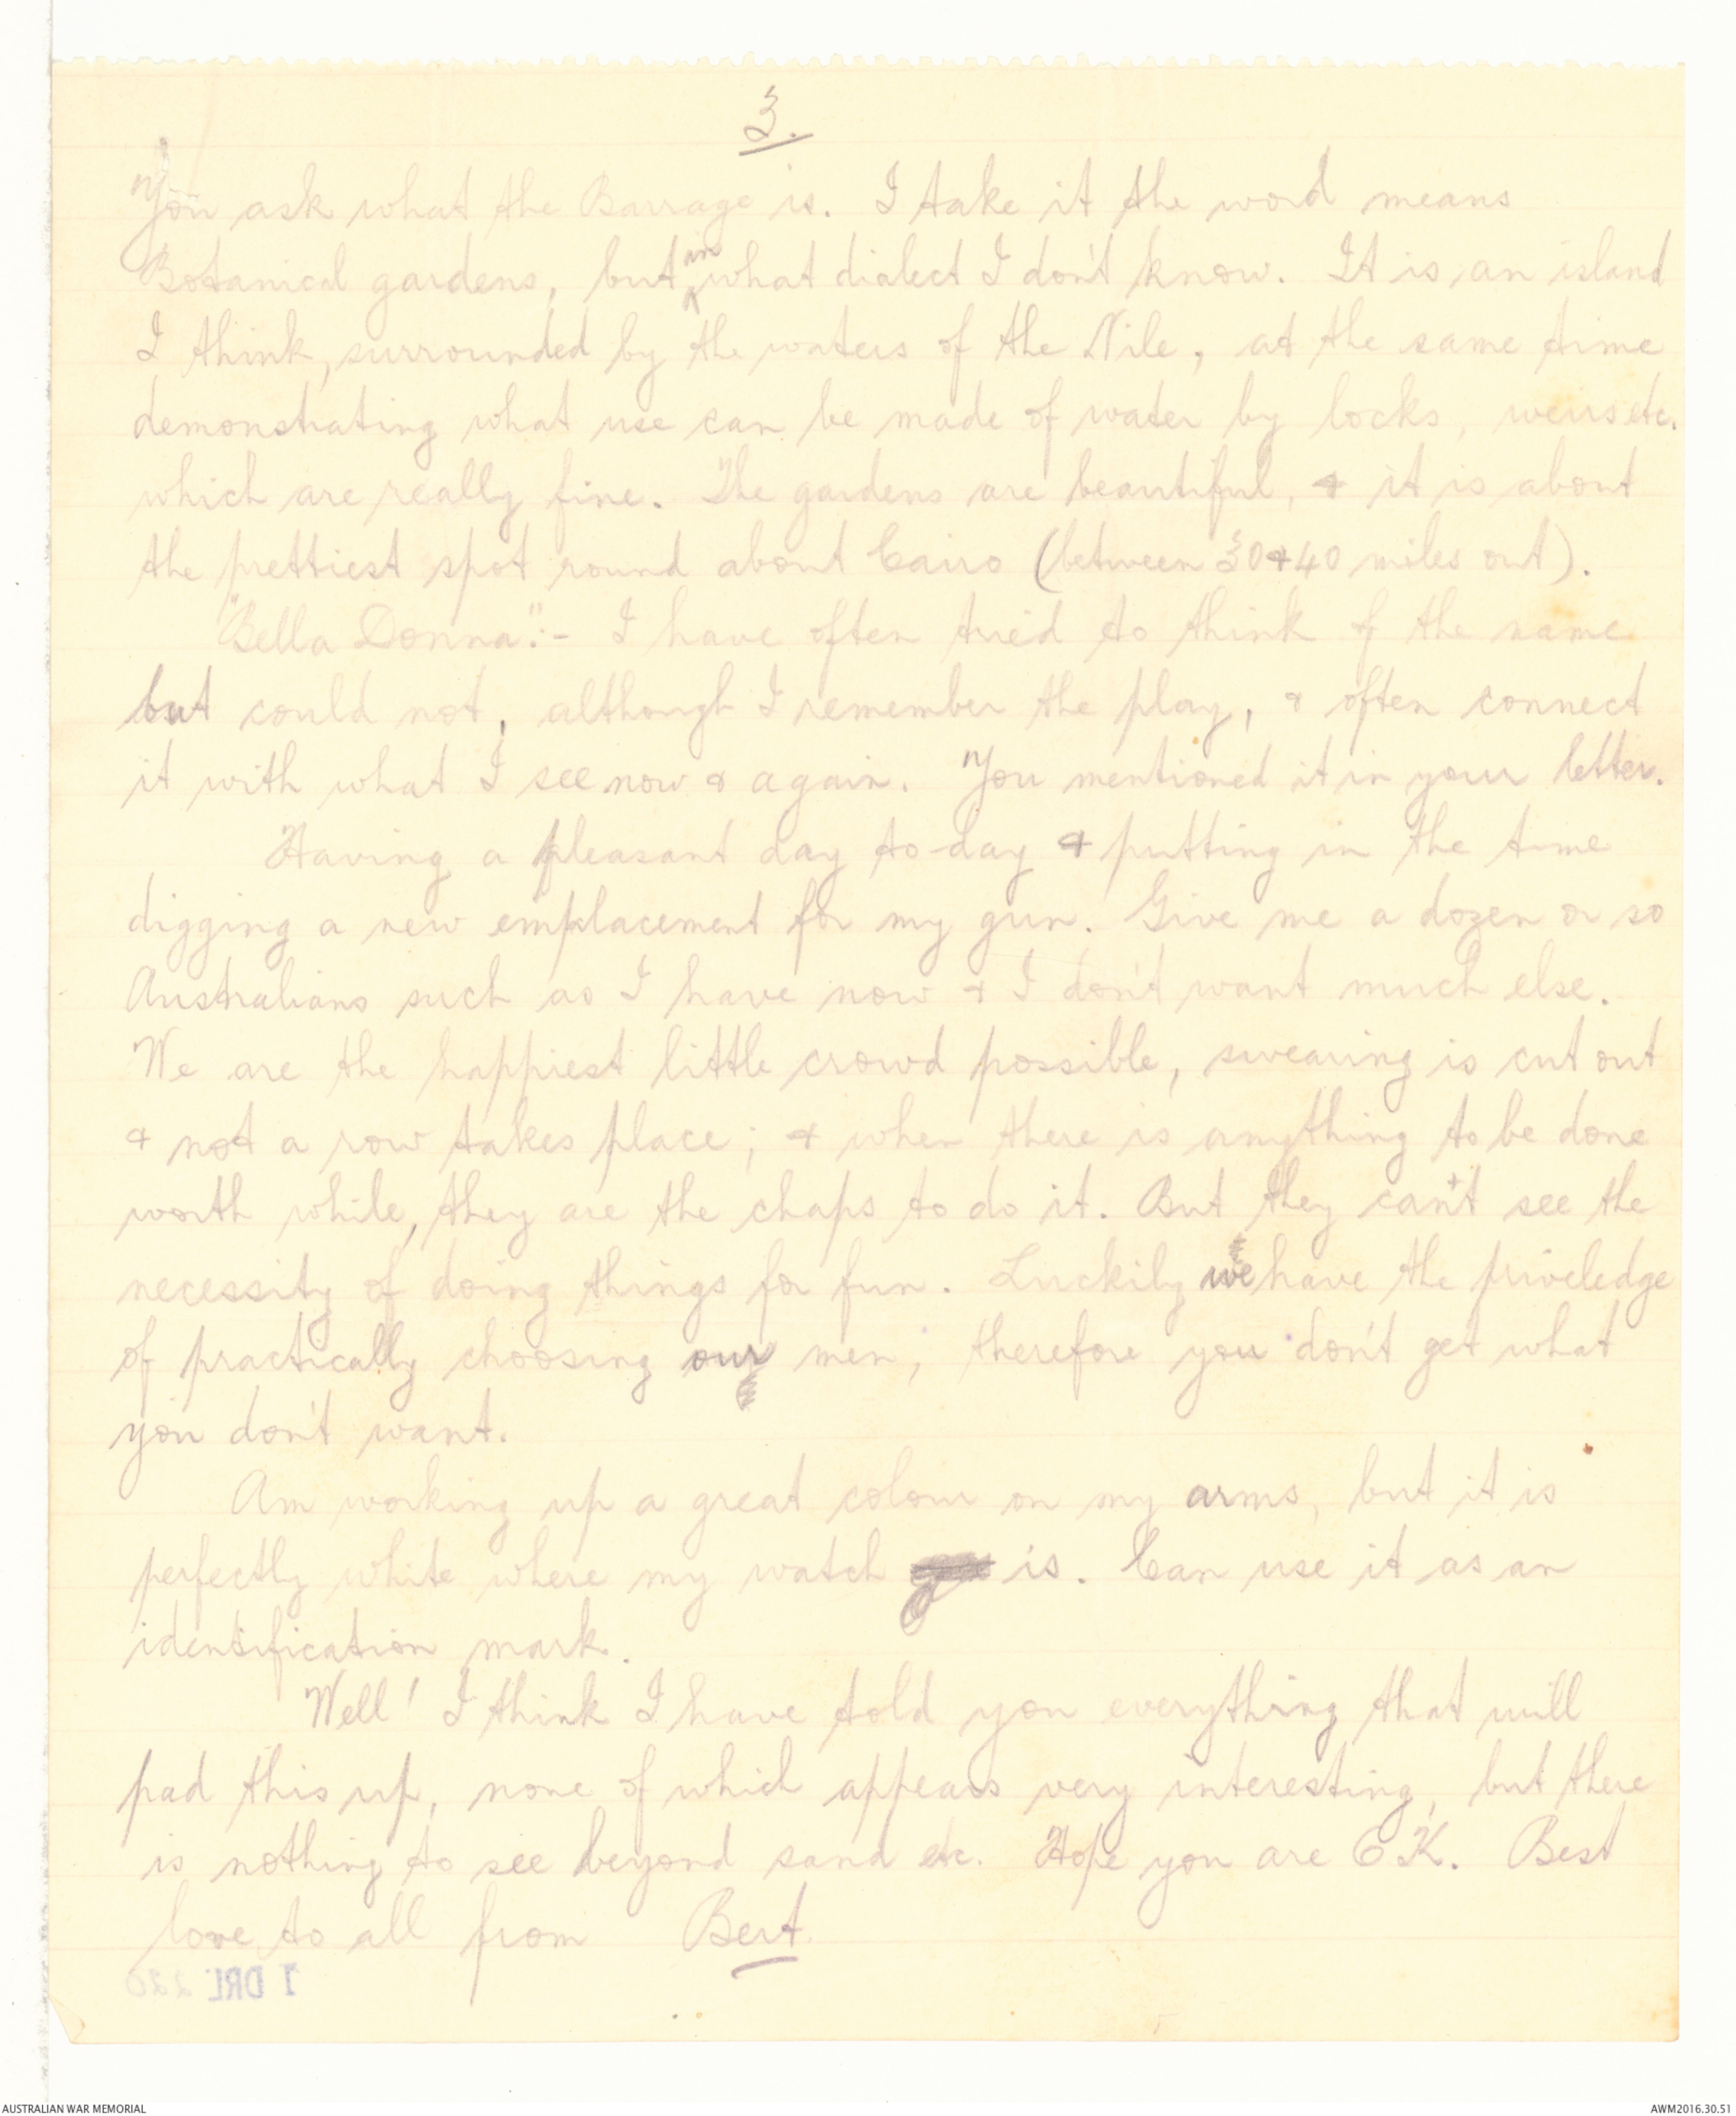 3.
You ask what the Barrage is. I take it the word means
Botanical gardens, but in what dialect I don't know. It is an island
I think, surrounded by the waters of the Nile, at the same time
demonstrating what use can be made of water by locks, weirs etc.
which are really fine. The gardens are beautiful, & it is about
the prettiest spot round about Cairo (between 30 & 40 miles out).
"Bella Donna":- I have often tried to think of the name
but could not, although I remember the play, & often connect
it with what I see now & again. You mentioned it in your letter.
Having a pleasant day to-day & putting in the time
digging a new emplacement for my gun. Give me a dozen or so
Australians such as I have now & I don't want much else.
We are the happiest little crowd possible, swearing is cut out
& not a row takes place; & when there is anything to be done
worth while, they are the chaps to do it. But they can't see the
necessity of doing things for fun. Luckily we have the priveledge
of practically choosing our men; therefore you don't get what
you don't want.
Am working up a great colour on my arms, but it is
perfectly white where my watch is. Can use it as an
identification mark.
Well! I think I have told you everything that will
pad this up, none of which appears very interesting, but there
is nothing to see beyond sand etc. Hope you are OK. Best
love to all from Bert.
1 DRL 220
AUSTRALIAN WAR MEMORIAL
AWM2016.30.51